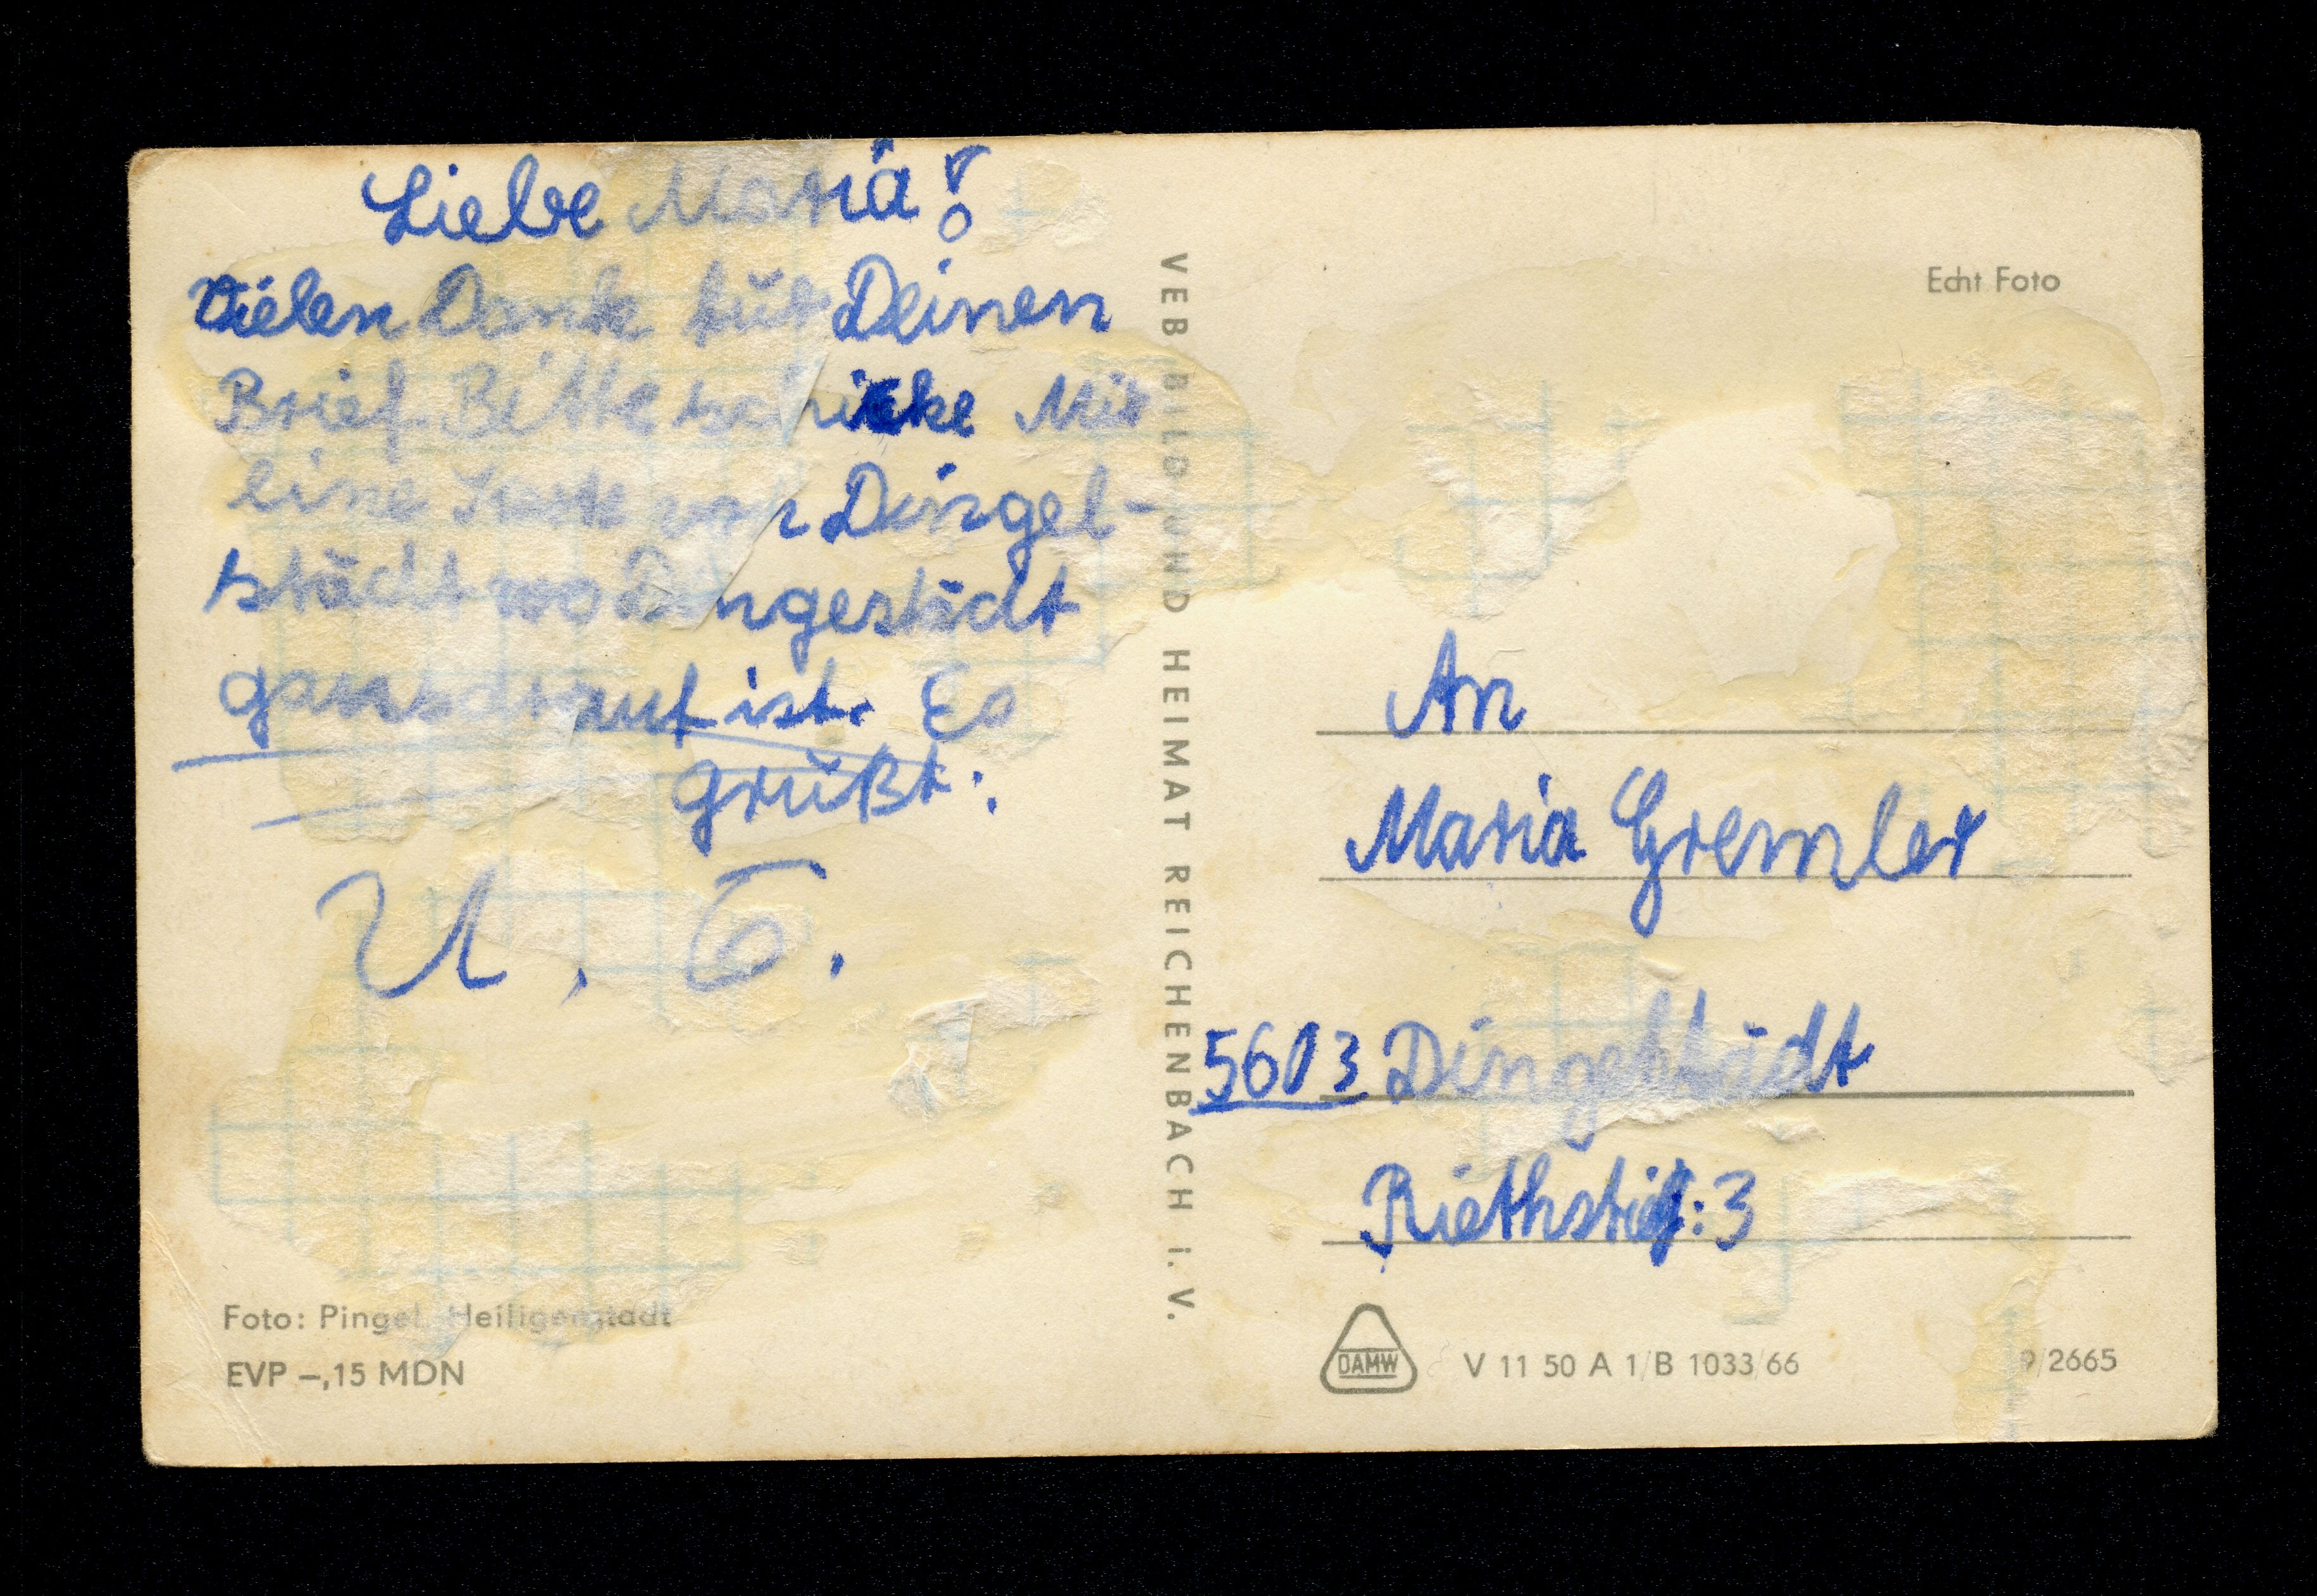 Liebe Maria!
Vielen Dank für Deinen
Brief. Bitte schicke Mir
eine Karte von Dingel-
städt wo Dingestädt
ganz drauf ist. Es
grüßt:
U. G.
VEB BILD UND HEIMAT REICHENBACH I. V.
Echt Foto
An
Maria Gremler
5603 Dingelstädt
Riethstieg: 3
Foto: Pingel, Heiligenstadt
EVP –,15 MDN
DAMW
V 11 50 A 1/B 1033/66
9/2665